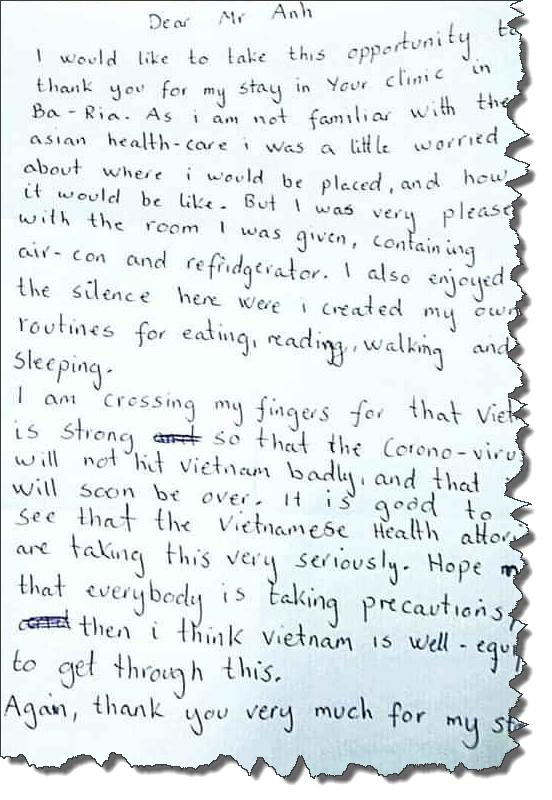 Dear Mr Anh
I would like to take this opportunity to
thank you for my stay in Your clinic in
Ba-Ria. As i am not familiar with the
asian health-care i was a little worried
about where i would be placed, and how
it would be like. But I was very please
with the room I was given, containing
air-con and refridgerator. I also enjoyed
the silence here were i created my own
routines for eating, reading, walking and
Sleeping.
I am crossing my fingers for that Viet
is strong so that the Corono-viru
will not hit Vietnam badly, and that
will soon be over. It is good to
see that the Vietnamese Health attori
are taking this very seriously. Hope
that everybody is taking precautions,
then i think Vietnam is well-equi
to get through this.
Again, thank you very much for my st